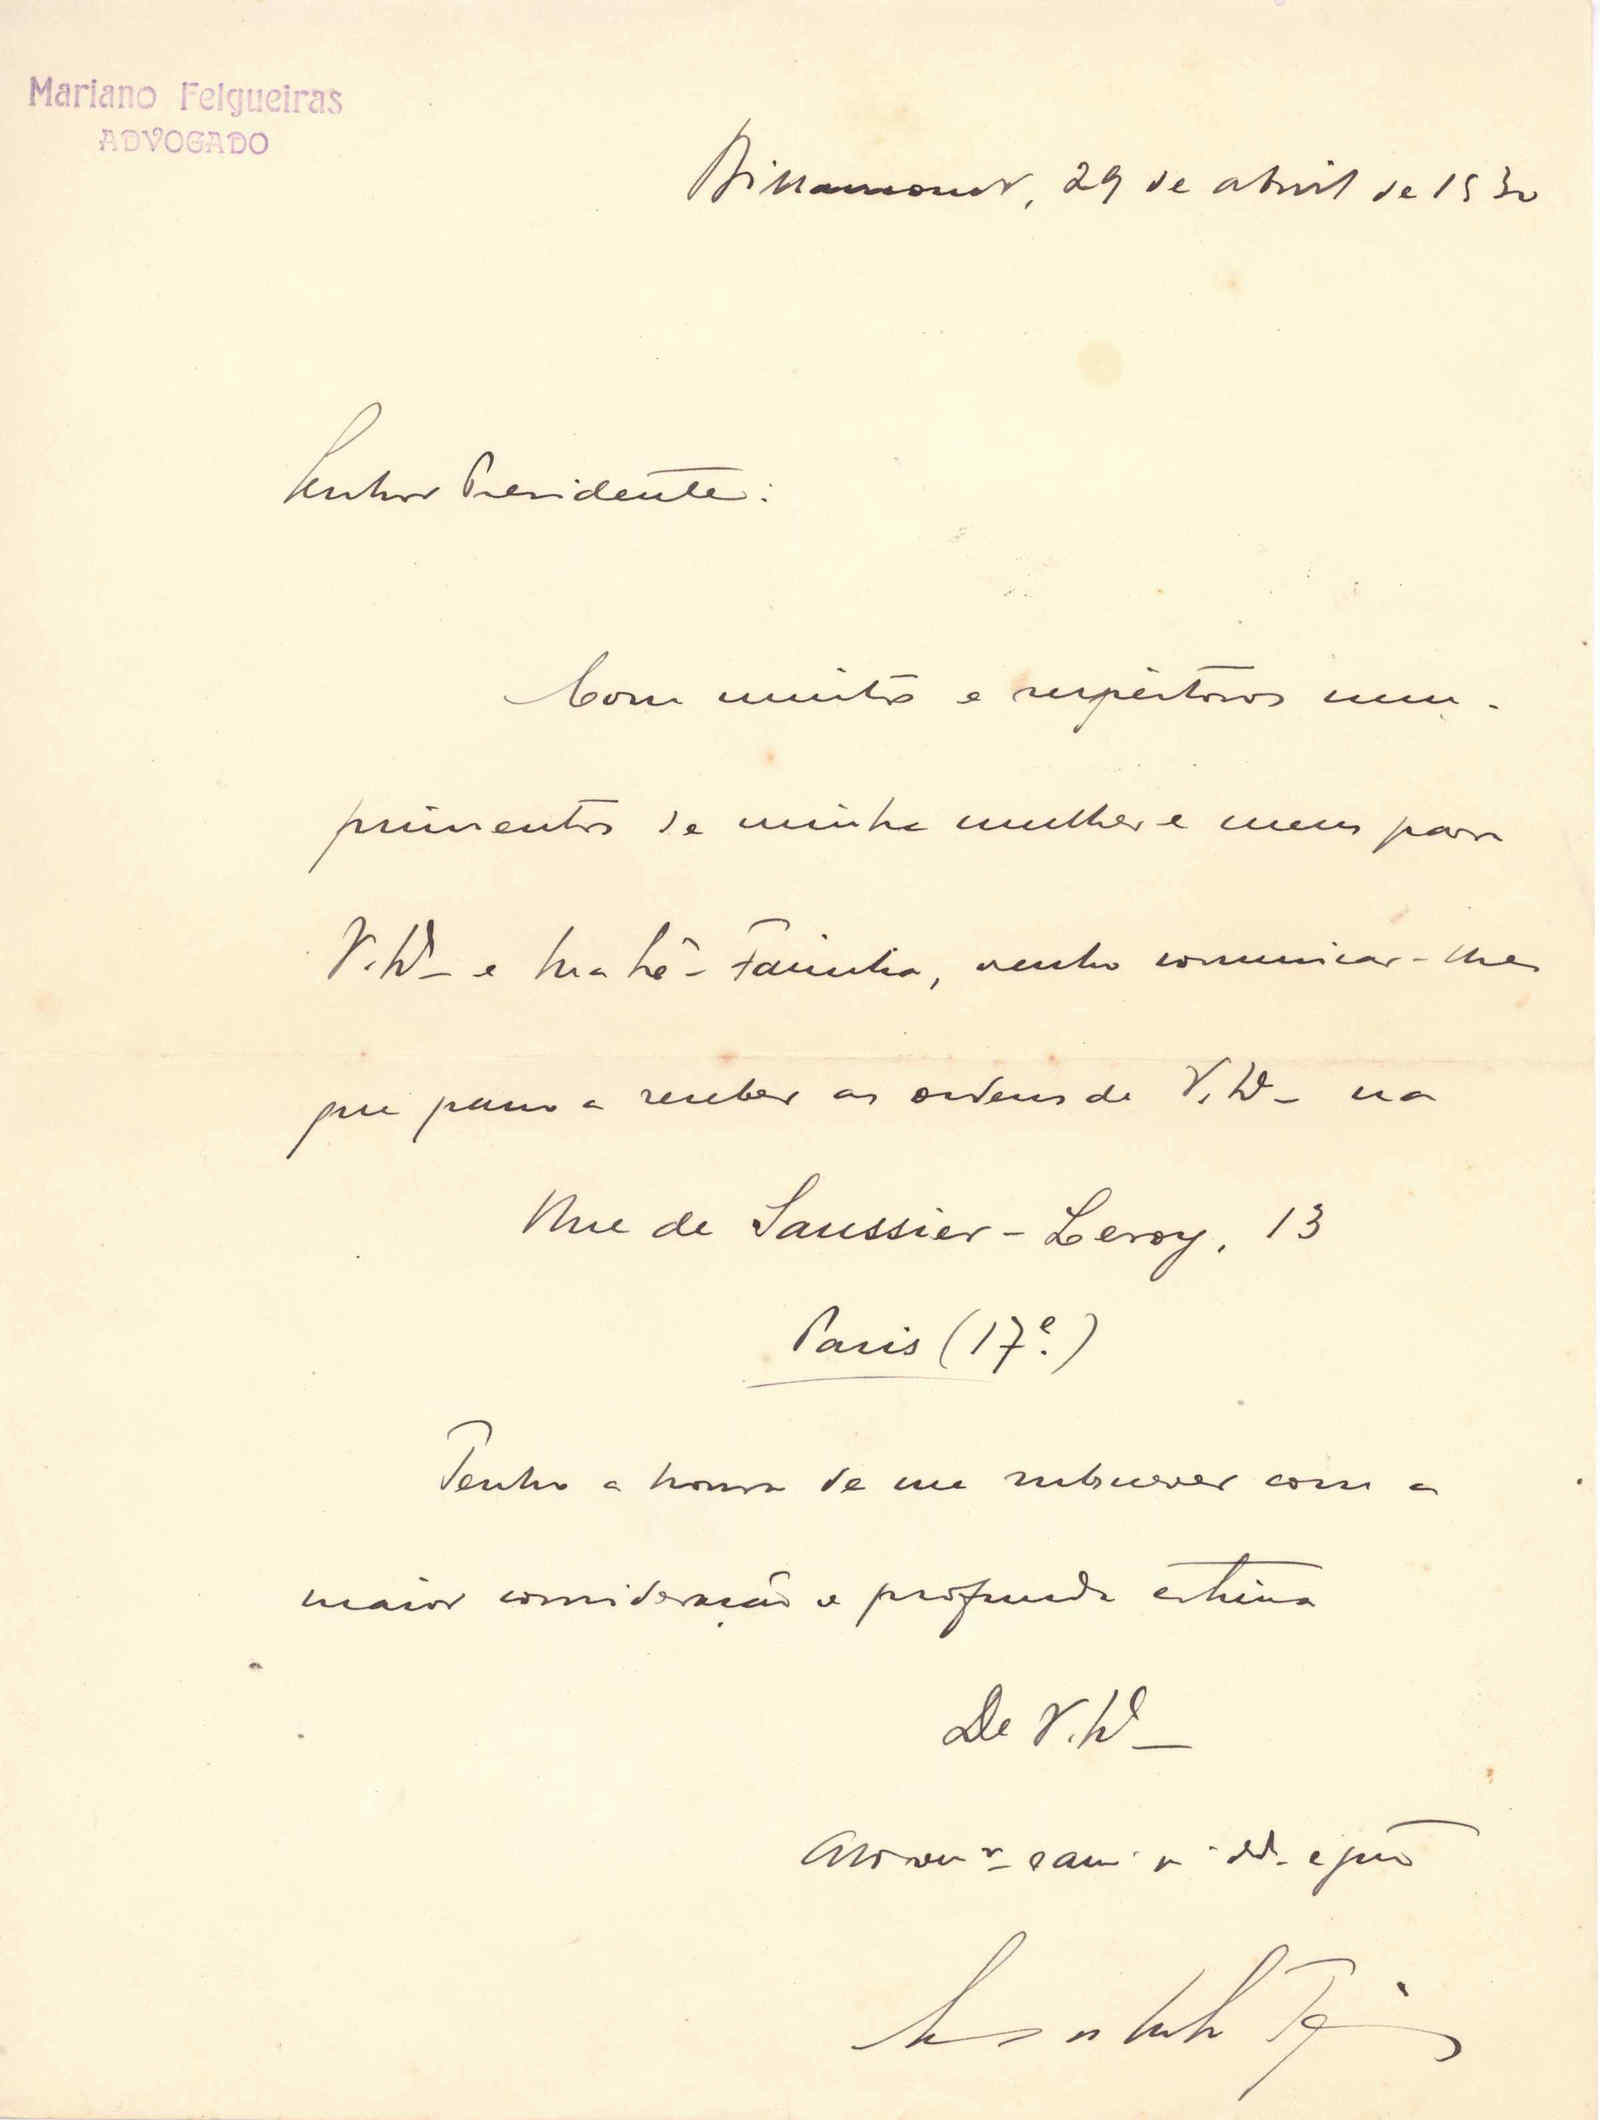 Mariano Felgueiras
ADVOGADO
29 de abril de 1930
Senhor Presidente:
Com muitos e respeitosos cum-
primentos de minha mulher e meus para
V. Ex.ª e Família, venho comunicar-lhe
que passo a receber as ordens de V. Ex.ª na
Rue de Saussier-Leroy, 13
Paris (17e.)
Tenho a honra de me subscrever com a
maior consideração e profunda estima
De V. Ex.ª